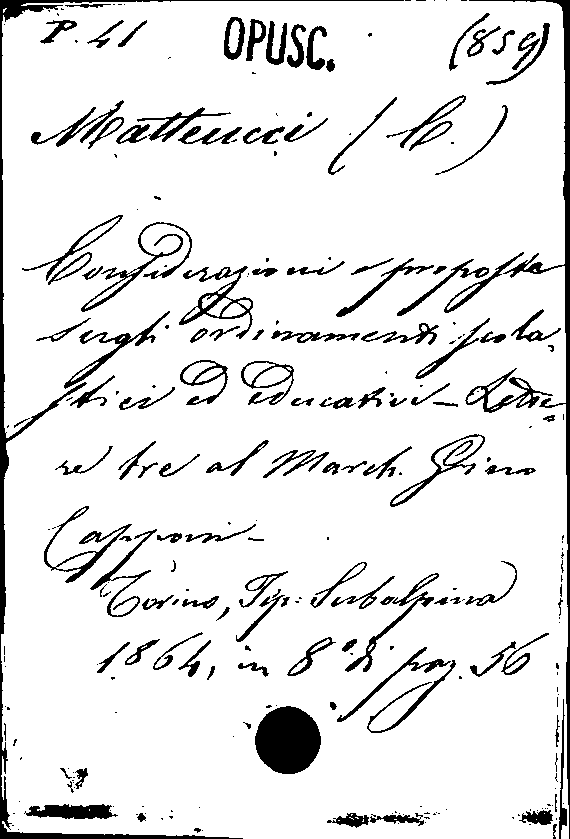 P. 41 OPUSC. (859)
Matteucci (C.)
Considerazioni e proposte
sugli ordinamenti scola-
stici ed educativi - Lette=
re tre al March. Gino
Capponi -
Torino, Tip: Subalpina
1864, in 8° di pag. 56